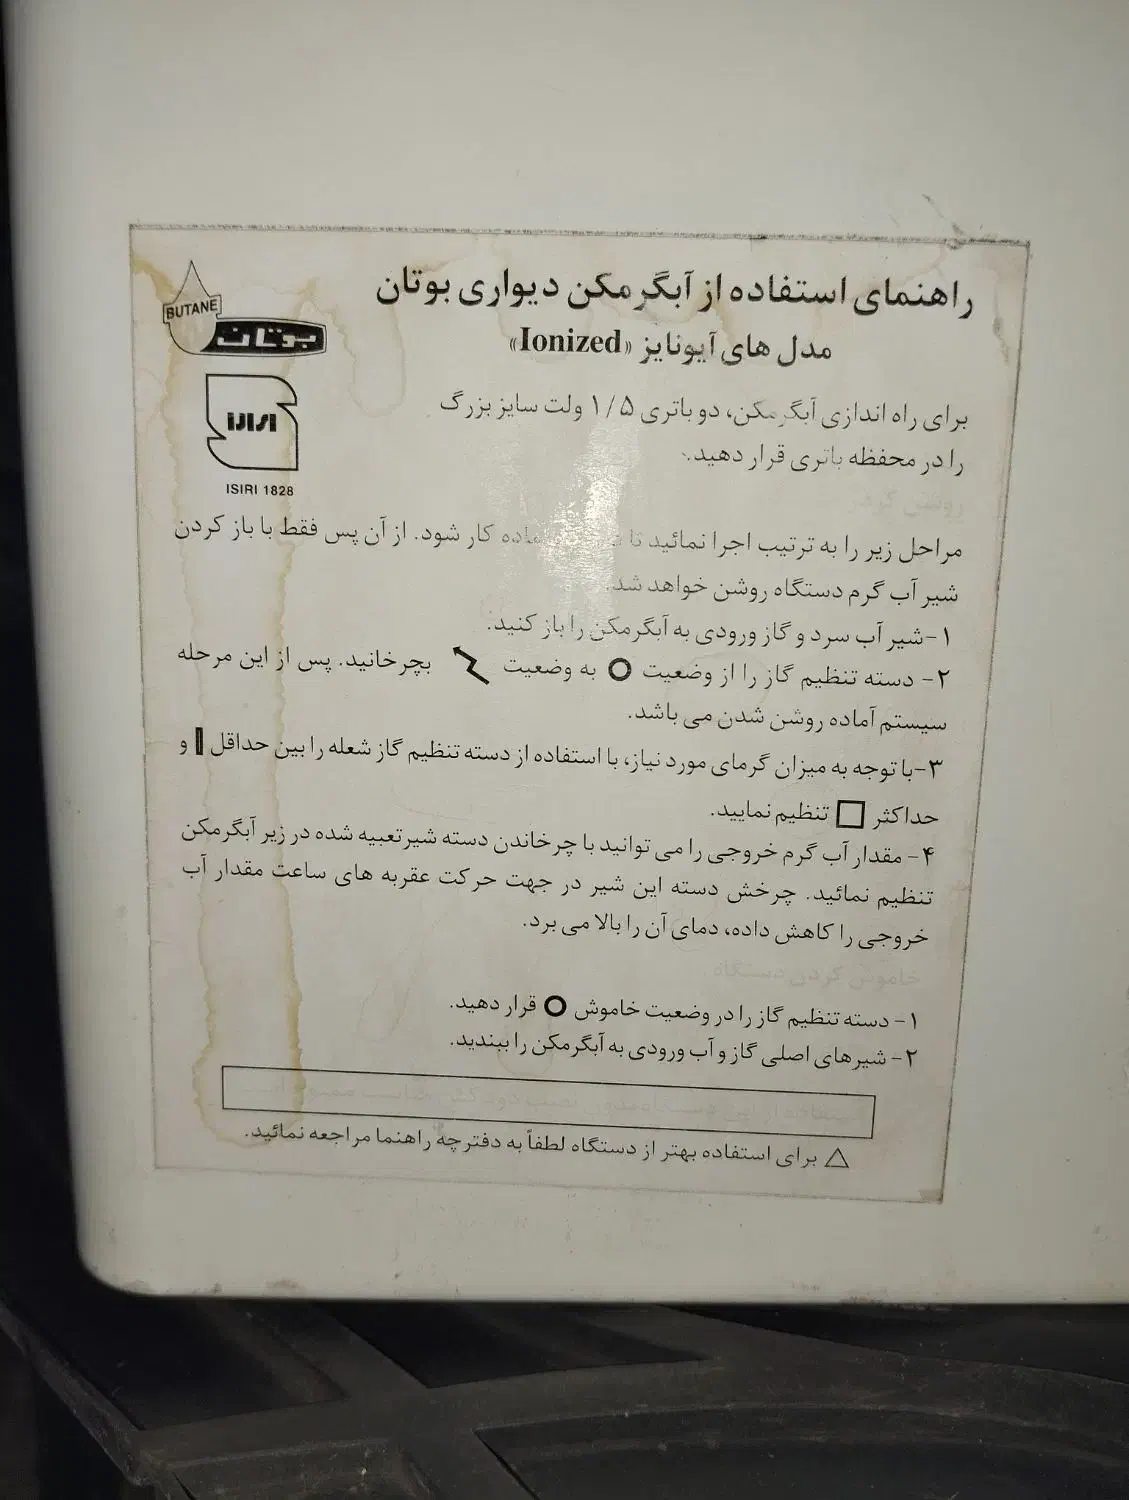 راهنمای استفاده از آبگرمکن دیواری بوتان
مدل های آیونایز «Ionized»
BUTANE
بوتان
ISIRI 1828
برای راه اندازی آبگرمکن، دو باتری ۱/۵ ولت سایز بزرگ
را در محفظه باتری قرار دهید.
روشن کردن
مراحل زیر را به ترتیب اجرا نمائید تا آماده کار شود. از آن پس فقط با باز کردن
شیر آب گرم دستگاه روشن خواهد شد.
۱-شیر آب سرد و گاز ورودی به آبگرمکن را باز کنید.
۲- دسته تنظیم گاز را از وضعیت به وضعیت بچرخانید. پس از این مرحله
سیستم آماده روشن شدن می باشد.
۳-با توجه به میزان گرمای مورد نیاز، با استفاده از دسته تنظیم گاز شعله را بین حداقل و
حداکثر تنظیم نمایید.
۴- مقدار آب گرم خروجی را می توانید با چرخاندن دسته شیرتعبیه شده در زیر آبگرمکن
تنظیم نمائید. چرخش دسته این شیر در جهت حرکت عقربه های ساعت مقدار آب
خروجی را کاهش داده، دمای آن را بالا می برد.
خاموش کردن دستگاه
۱- دسته تنظیم گاز را در وضعیت خاموش قرار دهید.
۲- شیرهای اصلی گاز و آب ورودی به آبگرمکن را ببندید.
استفاده از این دستگاه بدون نصب دودکش مناسب ممنوع است
برای استفاده بهتر از دستگاه لطفاً به دفترچه راهنما مراجعه نمائید.